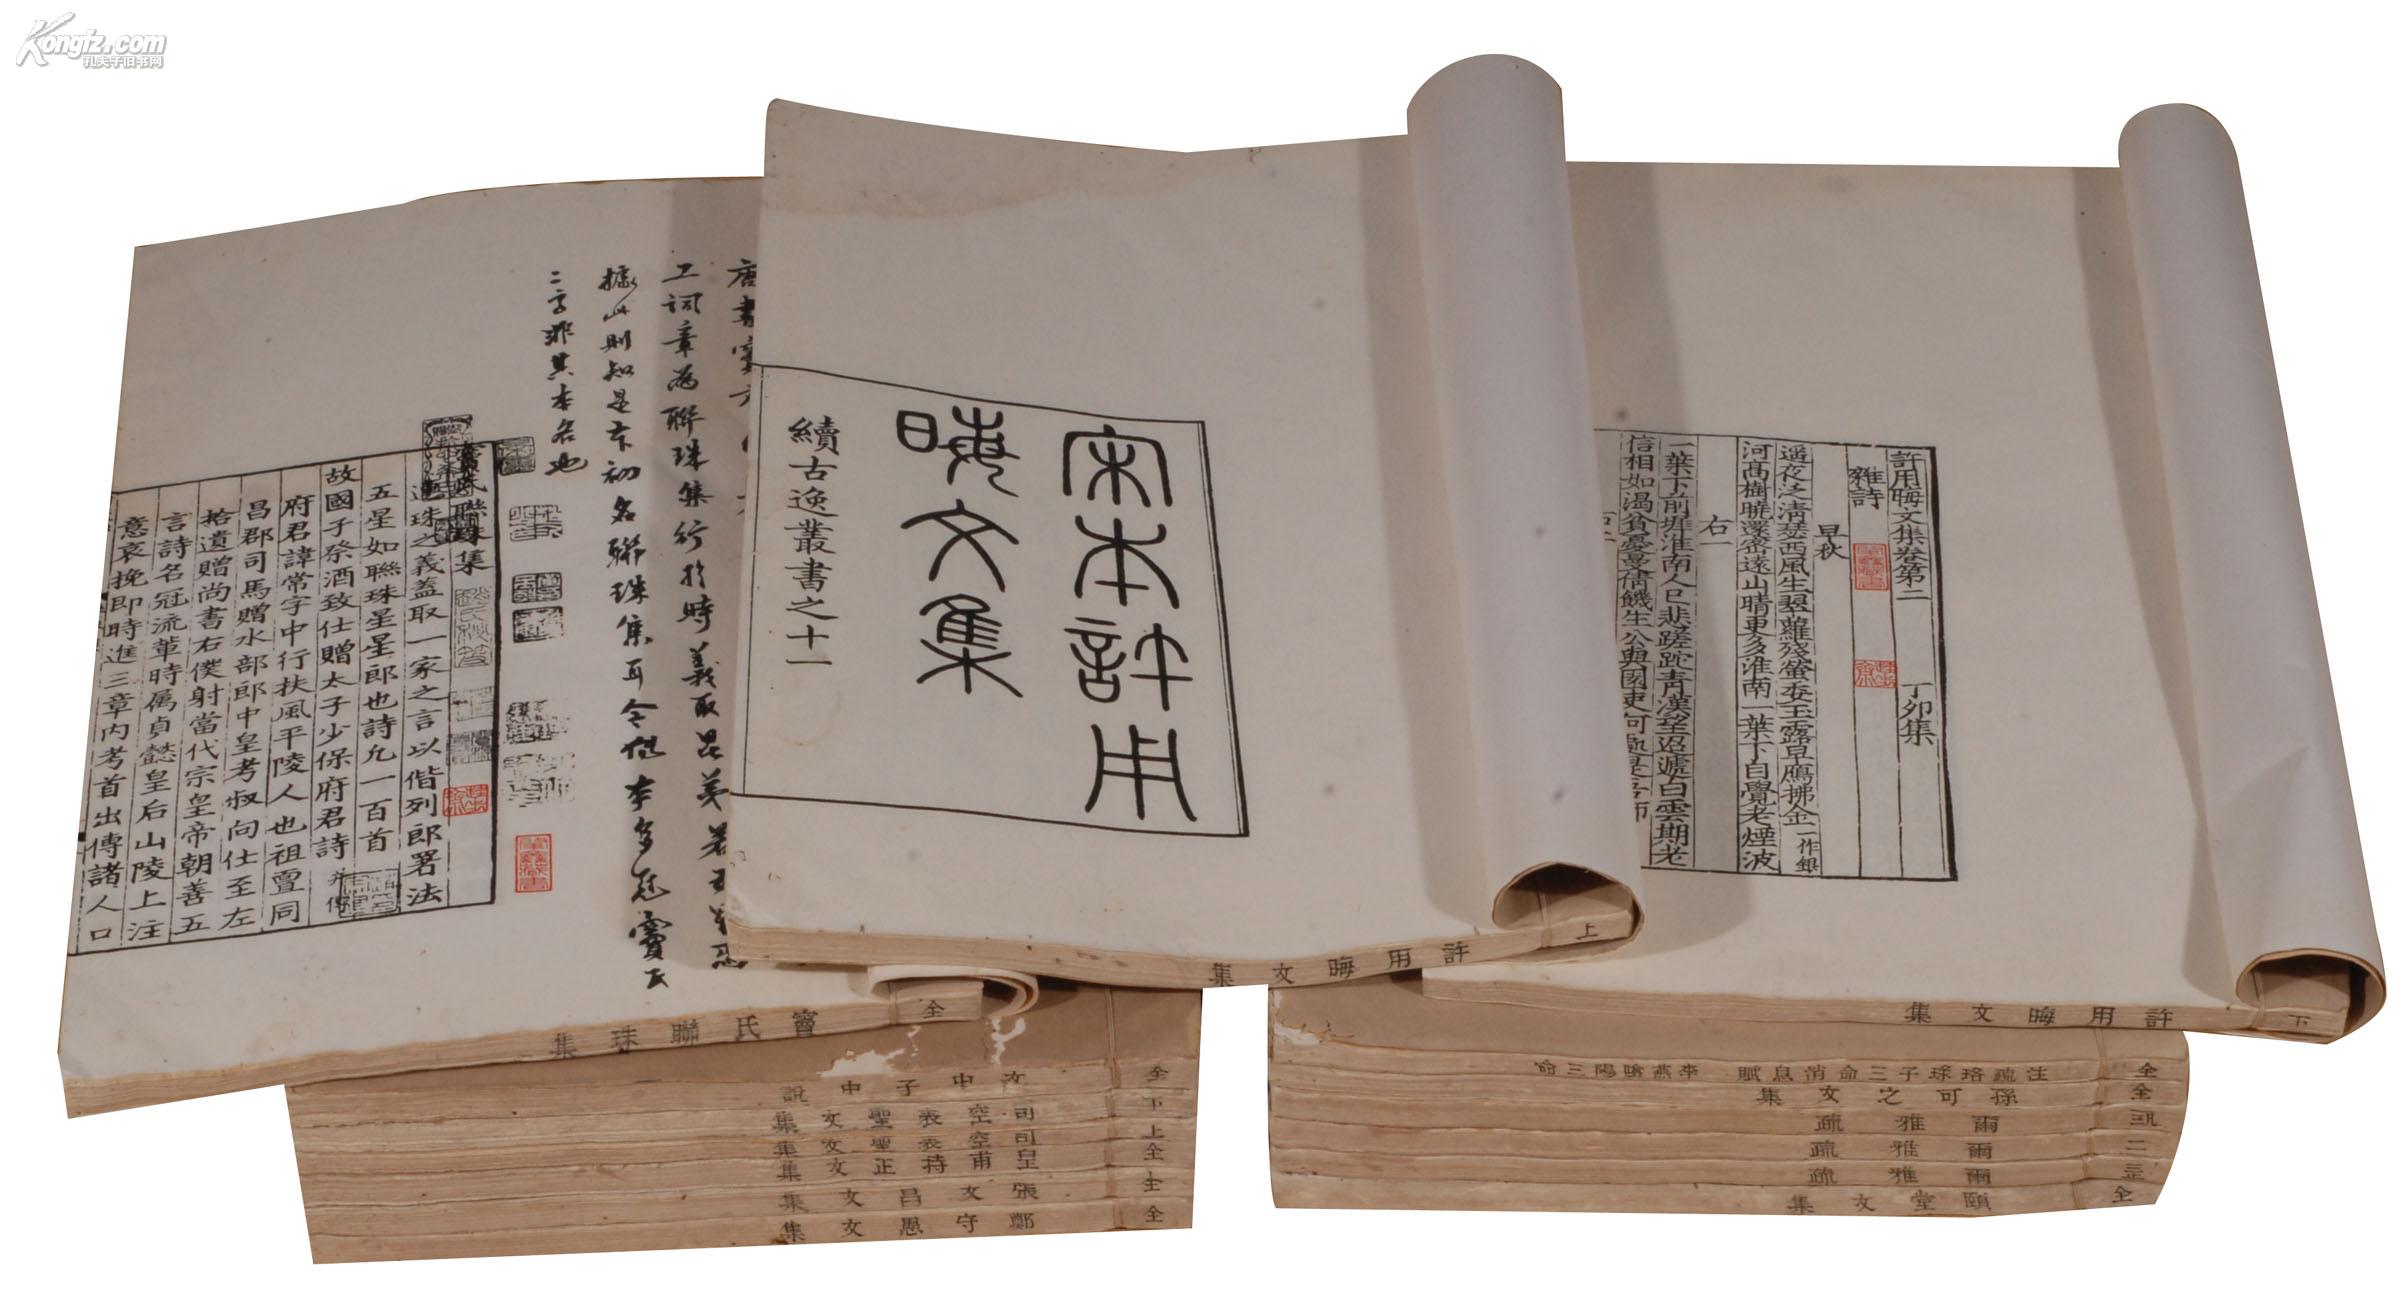 Kongfz.com
孔夫子旧书网
許用晦文集卷第二 丁卯集
雜詩
早秋
遥夜泛清瑟西風生翠蘿殘螢委玉露早鴈拂金一作銀
河髙樹曉還密遠山晴更多淮南一葉下自覺老煙波
右一
一葉下前墀淮南人已悲蹉跎青漢望迢遞白雲期老
信相如渴貧憂曼倩饑生公與園吏何
宋本許用
晦文集
續古逸叢書之十一
工詞章為聯珠集行於時義取昆弟若
據此則知是本初名聯珠集耳今他本多冠竇氏
二字非其本名也
竇氏聯珠集
連珠之義蓋取一家之言以偕列郎署法
五星如聯珠星星郎也詩凡一百首
故國子祭酒致仕贈太子少保府君詩并傳
府君諱常字中行扶風平陵人也祖亶同
昌郡司馬贈水部郎中皇考叔向仕至左
拾遺贈尚書右僕射當代宗皇帝朝善五
言詩名冠流輩時屬貞懿皇后山陵上注
意哀挽即時進三章內考首出傳諸人口
許用晦文集 上
許用晦文集 下
竇氏聯珠集 全
文中子中說 全
司空表聖文集 下
司空表聖文集 上
皇甫持正文集 全
張文昌文集 全
鄭守愚文集 全
注疏珞琭子三命消息賦 李燕陰陽三命 全
孫可之文集 全
爾雅疏
爾雅疏 二
爾雅疏
頤堂文集 全